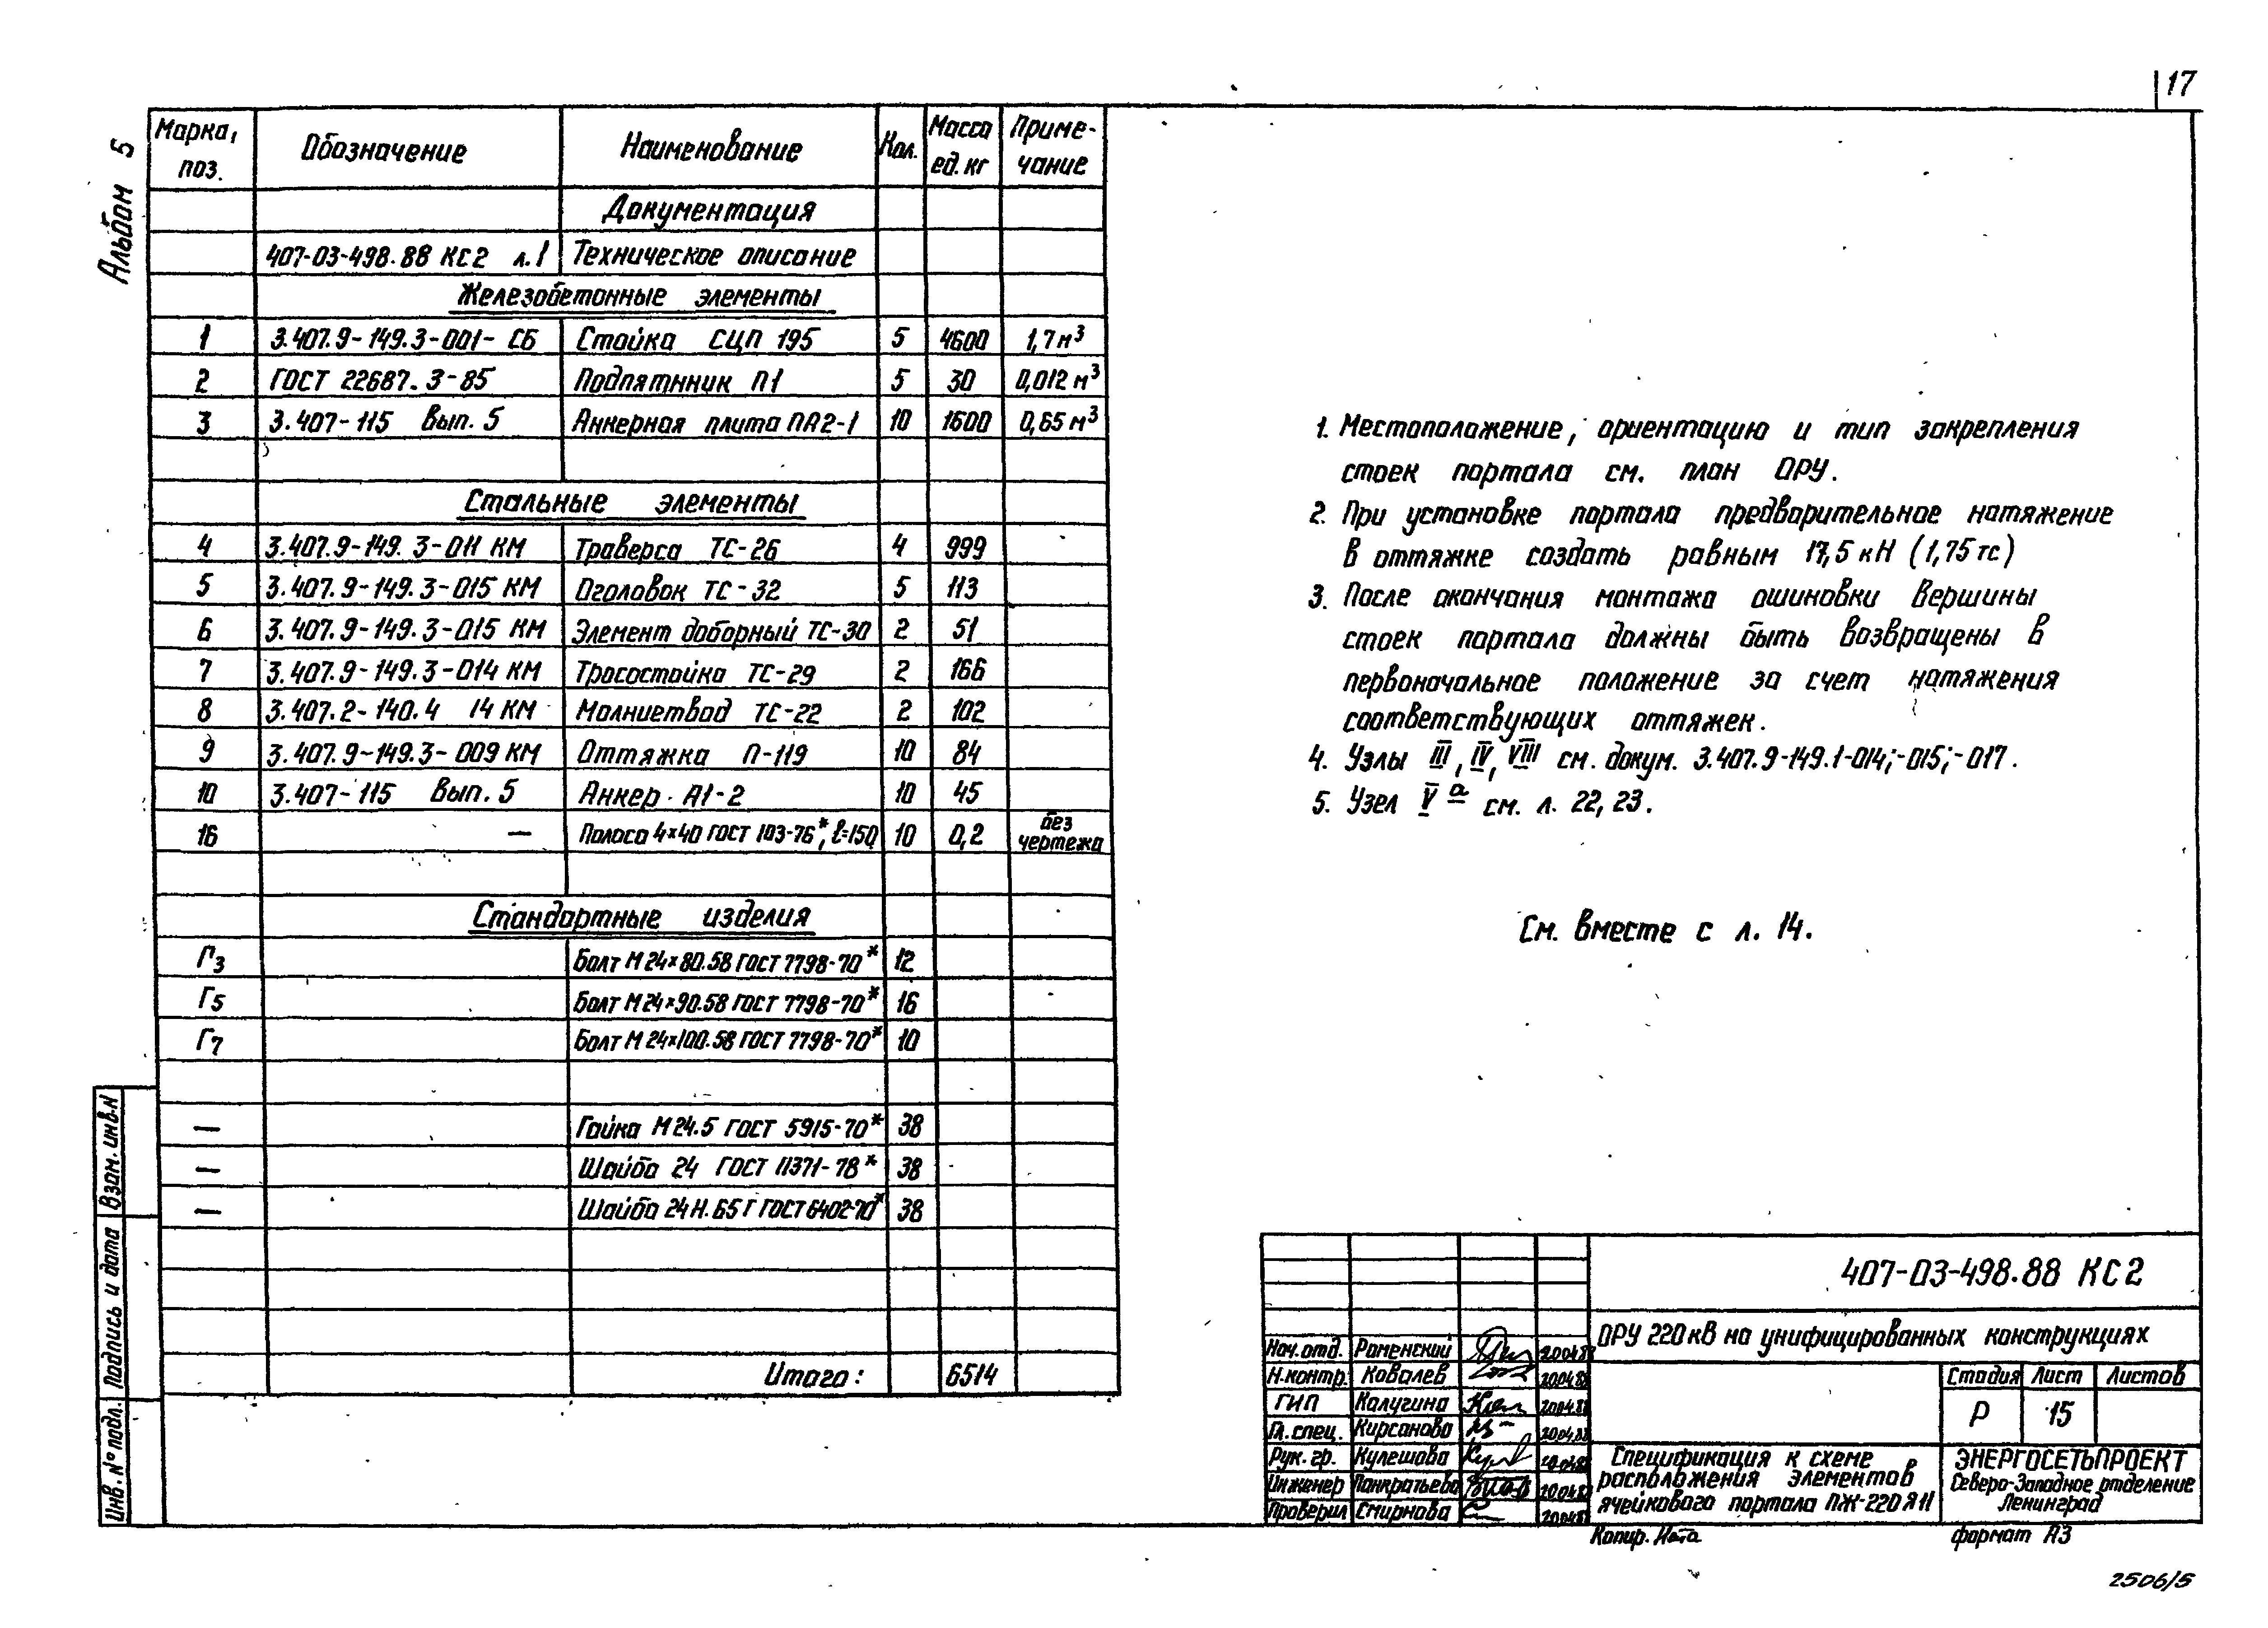 17
Альбом 5
Марка, поз. Обозначение Наименование Кол. Масса ед. кг Приме-чание
Документация
407-03-498.88 КС2 л.1 Техническое описание
Железобетонные элементы
1 3.407.9-149.3-001-СБ Стойка СЦП 195 5 4600 1,7м³
2 ГОСТ 22687.3-85 Подпятнник П1 5 30 0,012 м³
3 3.407-115 Вып. 5 Анкерная плита ПА2-1 10 1600 0,65 м³
Стальные элементы
4 3.407.9-149.3-011 КМ Траверса ТС-26 4 999
5 3.407.9-149.3-015 КМ Оголовок ТС-32 5 113
6 3.407.9-149.3-015 КМ Элемент доборный ТС-30 2 51
7 3.407.9-149.3-014 КМ Тросостойка ТС-29 2 166
8 3.407.2-140.4 14 КМ Молниетвод ТС-22 2 102
9 3.407.9-149.3-009 КМ Оттяжка П-119 10 84
10 3.407-115 Вып. 5 Анкер А1-2 10 45
16 — Полоса 4×40 ГОСТ 103-76*, ℓ=150 10 0,2 без чертежа
Стандартные изделия
Г3 Болт М24×80.58 ГОСТ 7798-70* 12
Г5 Болт М24×90.58 ГОСТ 7798-70* 16
Г7 Болт М24×100.58 ГОСТ 7798-70* 10
— Гайка М24.5 ГОСТ 5915-70* 38
— Шайба 24 ГОСТ 11371-78* 38
— Шайба 24Н.65Г ГОСТ 6402-70* 38
Итого: 6514
1. Местоположение, ориентацию и тип закрепления
стоек портала см. план ОРУ.
2. При установке портала предварительное натяжение
в оттяжке создать равным 17,5 кН (1,75 тс)
3. После окончания монтажа ошиновки вершины
стоек портала должны быть возвращены в
первоначальное положение за счет натяжения
соответствующих оттяжек.
4. Узлы III, IV, VIII см. докум. 3.407.9-149.1-014;-015;-017.
5. Узел Vа см. л. 22, 23.
См. вместе с л. 14.
Взам. инв. N
Подпись и дата
Инв. № подл.
407-03-498.88 КС2
ОРУ 220 кВ на унифицированных конструкциях
Нач. отд. Роменский 20.04.88
Н.контр. Ковалев 20.04.88
ГИП Калугина 20.04.88
Гл. спец. Кирсанова 20.04.88
Рук. гр. Кулешова 20.04.88
Инженер Панкратьева 20.04.88
Проверил Смирнова 20.04.88
Стадия Лист Листов
Р 15
Спецификация к схеме
расположения элементов
ячейкового портала ПЖ-220Я11
ЭНЕРГОСЕТЬПРОЕКТ
Северо-Западное отделение
Ленинград
Копир. Ната
формат А3
2506/5